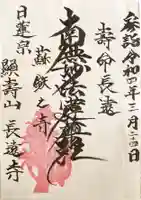 奉詣 令和四年三月二十四日
壽命長遠
南無妙法蓮華経
蘇鉄之寺
日蓮宗 顯壽山 長遠寺